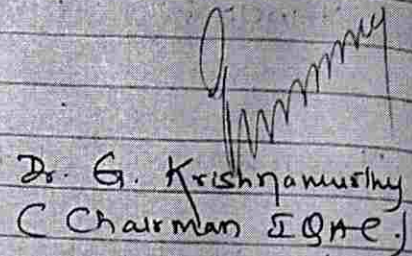 Dr. G. Krishnamurthy
C Chairman IQAC.)